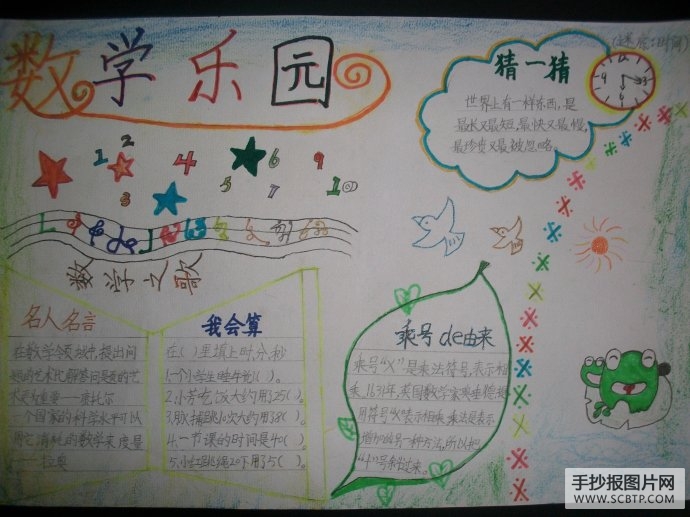 数学乐园
猜一猜
(谜底:时间)
世界上有一样东西,是
最长又最短,最快又最慢,
最珍贵又最被忽略。
1 2 3 4 5 6 7 9 10
数学之歌
名人名言
在数学领域中,提出问
题的艺术比解答问题的艺
术更为重要——康托尔
一个国家的科学水平可以
用它消耗的数学来度量
——拉奥
我会算
在( )里填上时、分、秒
1.个小学生睡午觉1( )。
2.小芳吃饭大约用25( )。
3.脉搏跳10次大约用8( )。
4.一节课的时间是40( )。
5.小红跳绳20下用了5( )。
乘号de由来
乘号“×”是乘法符号,表示相
乘,1631年,英国数学家奥垂德提
用符号“×”表示相乘。乘法是表示
增加的另一种方法,所以把
“+”号斜过来。
手抄报图片网
www.SCBTP.COM